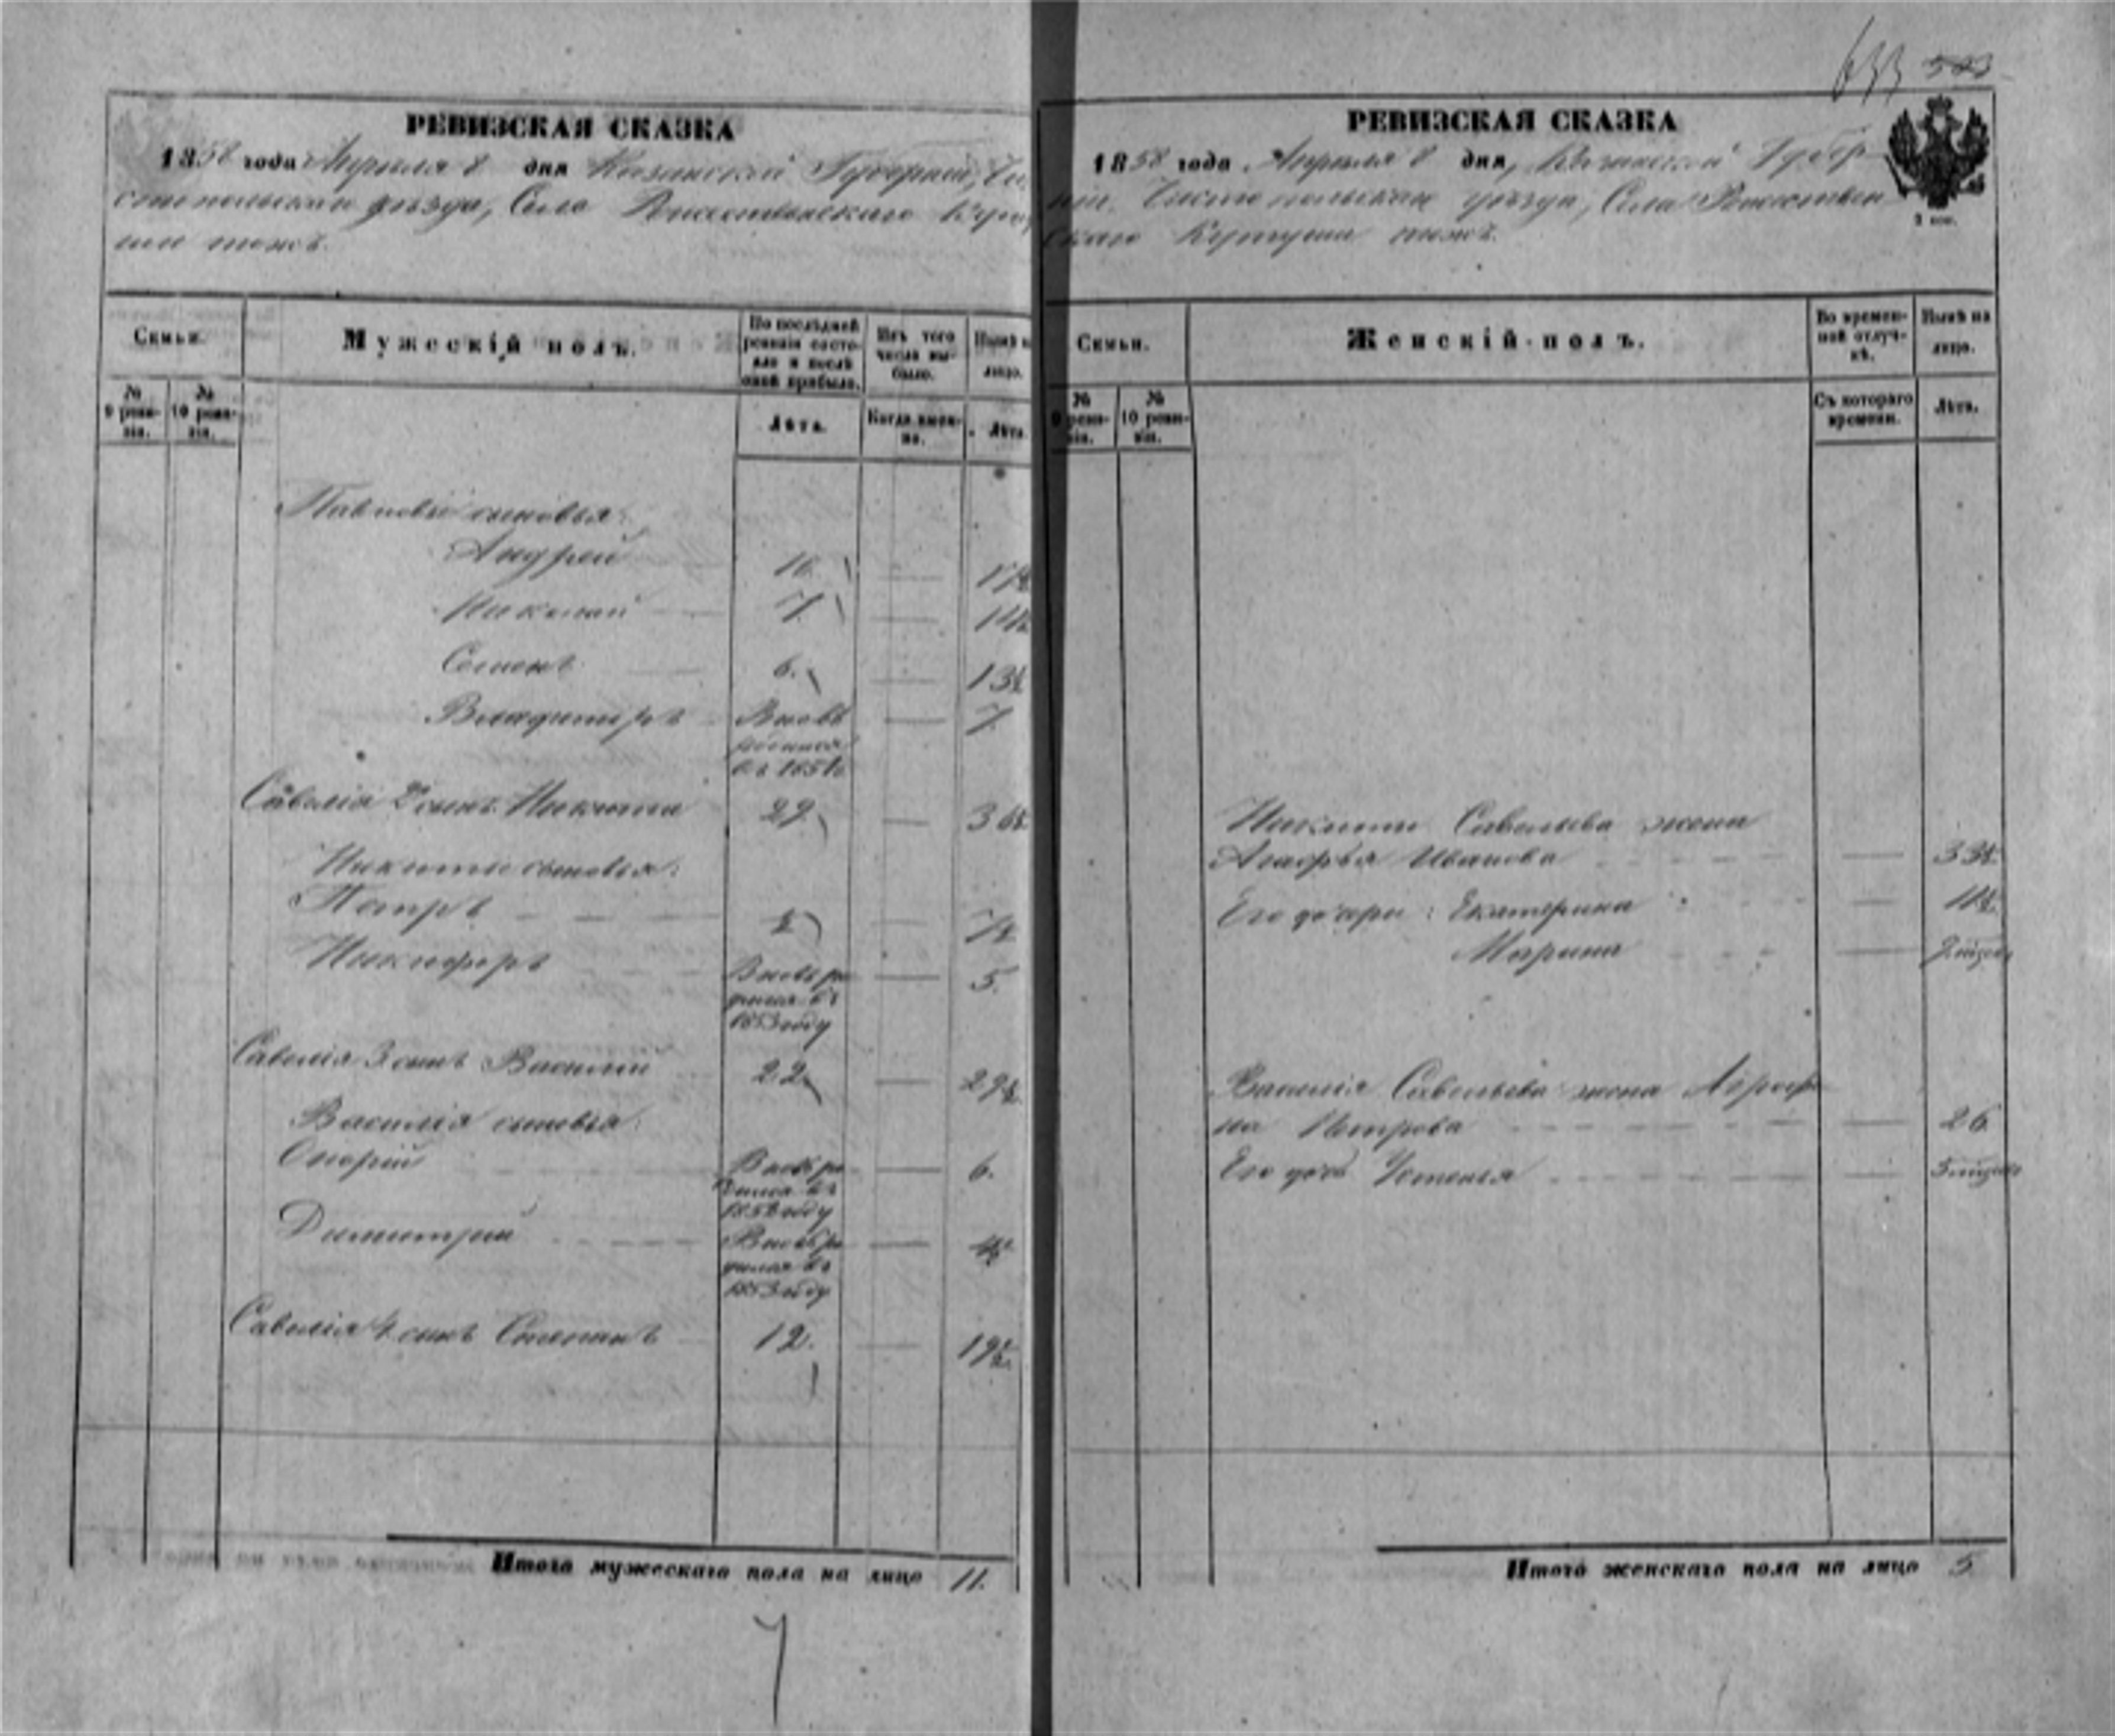 633 583
РЕВИЗСКАЯ СКАЗКА
1858 года Апреля 8 дня Казанской Губерніи, Чи
стопольскаго уезда, Села Рождественскаго Кур
тоже.
Семьи.
Мужескій полъ.
По последней ревизіи состояло и после оной прибыло.
Изъ того числа выбыло.
Ныне на лицо.
№ 9 ревизіи.
№ 10 ревизіи.
Лета.
Когда именно.
Лета
Павловы сыновья:
Андрей 10. 17½
Николай 7. 14½
Семенъ 6. 13½
Владимиръ Вновь 7.
родился
въ 1851
Савелія 2 сынъ Никита 29 36½
Никиты сыновья:
Петръ 7½
Никифоръ Вновь ро 5.
дился въ
1853 году
Савелія 3 сынъ Василій 22 29½
Василія сыновья:
Вновь ро 6.
дился въ
году
Димитрій Вновь ро 4½
дился въ
1853 году
Савелія 4 сынъ Степанъ 12. 19½
Итого мужескаго пола на лицо 11.
РЕВИЗСКАЯ СКАЗКА
1858 года Апреля 8 дня, Казанской Губер
ніи, Чистопольскаго уезда, Села Рождествен
скаго тоже.
2 коп.
Семьи.
Женскій полъ.
Во временной отлучке.
Ныне на лицо.
№ 9 ревизіи.
№ 10 ревизіи.
Съ котораго времени.
Лета.
Никиты Савельева жена
Агафья Иванова 33½
Его дочери: Екатерина 11½
Марина
Василія Савельева жена Аграфе
на Петрова 26
Его дочь Устинья 5 месяц
Итого женскаго пола на лицо 5